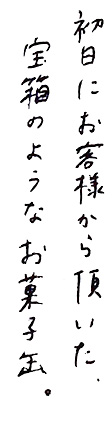 初日にお客様から頂いた、
宝箱のようなお菓子缶。